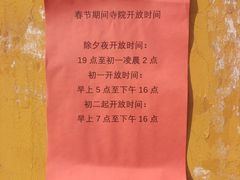 春节期间寺院开放时间
除夕夜开放时间：
19 点至初一凌晨 2 点
初一开放时间：
早上 5 点至下午 16 点
初二起开放时间：
早上 7 点至下午 16 点